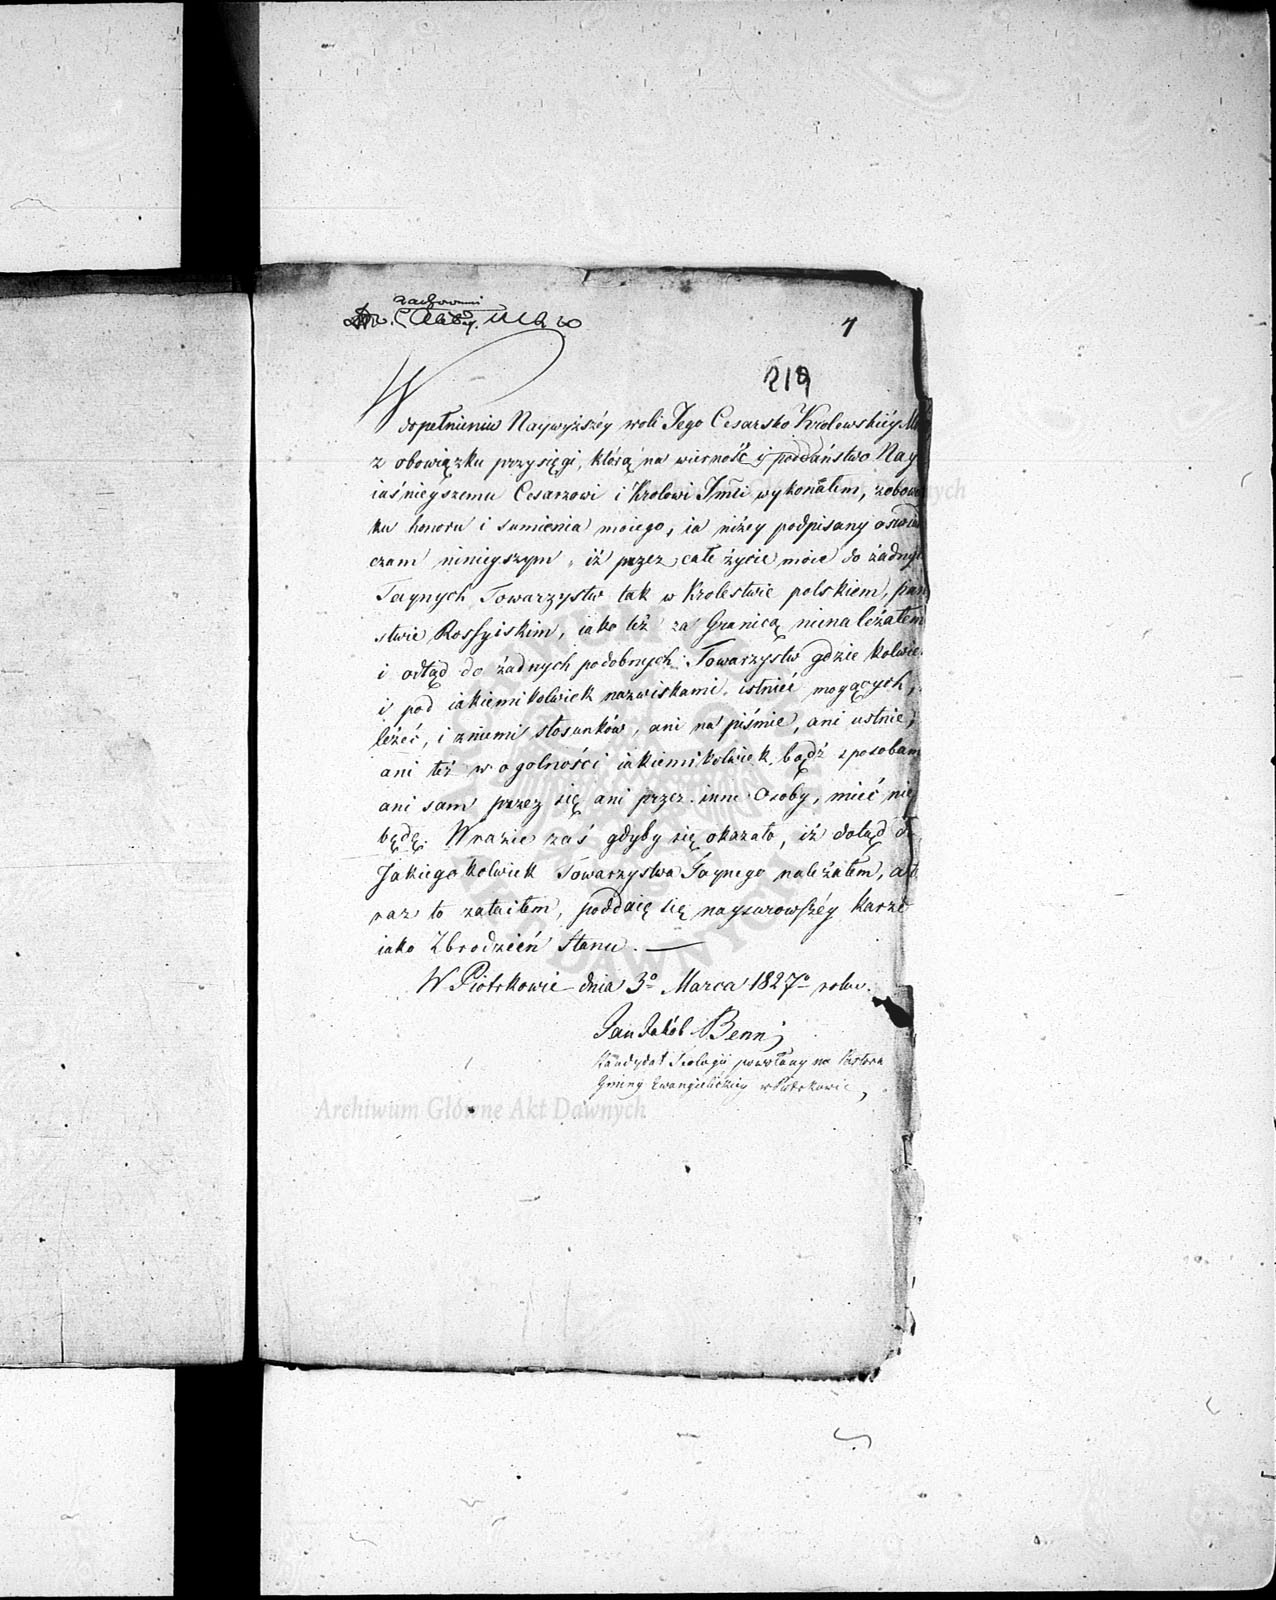 7
219
W dopełnieniu Naywyższéy woli Jego Cesarsko Krolewskiéy
z obowiązku przysięgi, którą na wierność i poddaństwo Nay
iaśnieyszemu Cesarzowi i Krolowi Jmći wykonałem, zobowi
ku honoru i sumienia moiego, ia niżey podpisany oswiad
czam ninieyszym, iż przez całe życie moie do żadnych
Taynych Towarzystw tak w Krolestwie polskiem, pań
stwie Rossyiskim, iako też za Granicą nienależałem
i odtąd do żadnych podobnych Towarzystw gdzie kolwiek
i pod iakiemikolwiek nazwiskami, istnieć mogących,
leżeć, i z niemi stosunków, ani na piśmie, ani ustnie,
ani też w ogolności iakiemikolwiek bądź sposobam
ani sam przez się ani przez inne Osoby, mieć nie
będę. W razie zaś gdyby się okazało, iż dotąd d
Jakiegokolwiek Towarzystwa Taynego należałem, a t
raz to zataiłem, poddaię się naysurowszéy karze
iako Zbrodzień Stanu.
W Piotrkowie dnia 3º Marca 1827º roku.
Jan Jakób Benni
Kandydat Teologii powołany na Pastora
Gminy Ewangielickiey w Piotrkowie,
Archiwum Główne Akt Dawnych